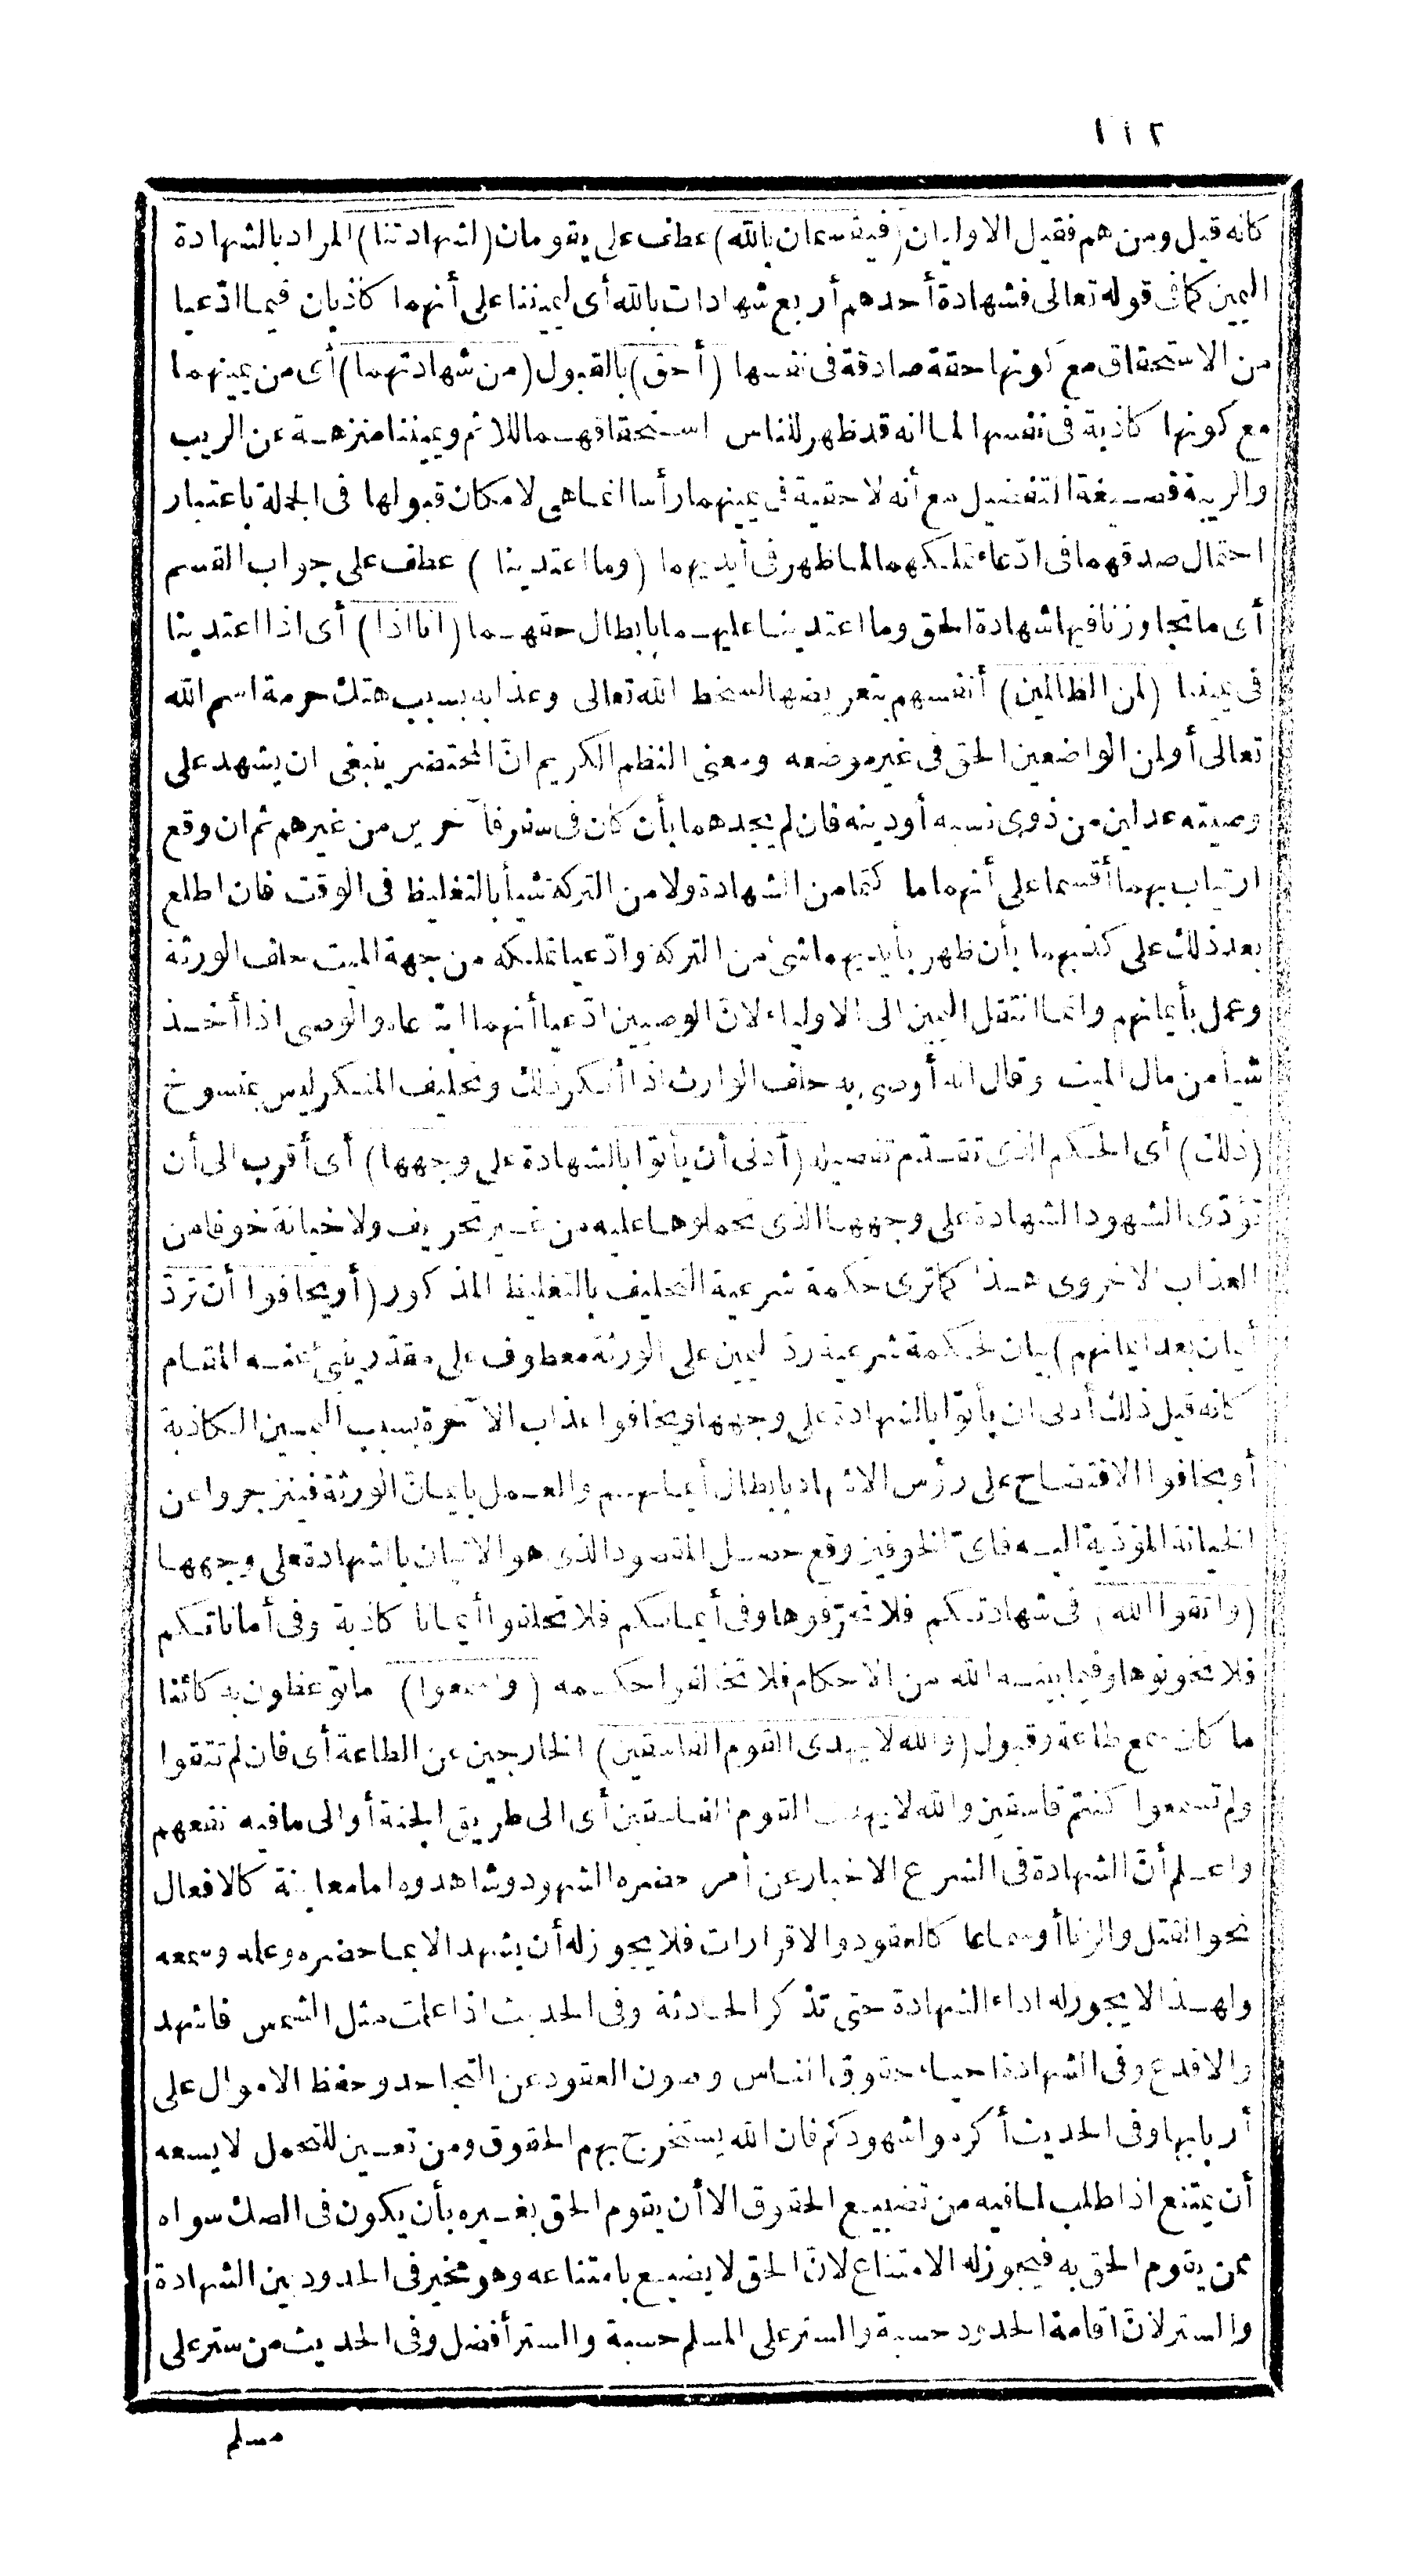 ٦١٢
كانه قيل ومن هم فقيل الاوليان (فيقسمان بالله) عطف على يقومان (لشهادتنا) المراد بالشهادة
اليمين كما فى قوله تعالى فشهادة أحدهم أربع شهادات بالله أى ليميننا على أنهما كاذبان فيما ادّعيا
من الاستحقاق مع كونها حقة صادقة فى نفسها (أحق) بالقبول (من شهادتهما) أى من يمينهما
مع كونها كاذبة فى نفسها لما انه قد ظهر للناس استحقاقهما للاثم ويميننا منزهة عن الريب
والريبة فصيغة التفضيل مع أنه لا حقية فى يمينهما رأسا انما هى لامكان قبولها فى الجملة باعتبار
احتمال صدقهما فى ادّعاء تملكهما لما ظهر فى أيديهما (وما اعتدينا) عطف على جواب القسم
أى ما تجاوزنا فيها شهادة الحق وما اعتدينا عليهما بابطال حقهما (انا اذا) أى اذا اعتدينا
فى يميننا (لمن الظالمين) أنفسهم بتعريضها لسخط الله تعالى وعذابه بسبب هتك حرمة اسم الله
تعالى أو لمن الواضعين الحق فى غير موضعه ومعنى النظم الكريم انّ المحتضر ينبغى ان يشهد على
وصيته عدلين من ذوى نسبه أو دينه فان لم يجدهما بأن كان فى سفر فآخرين من غيرهم ثم ان وقع
ارتياب بهما أقسما على أنهما ما كتما من الشهادة ولا من التركة شيأ بالتغليظ فى الوقت فان اطلع
بعد ذلك على كذبهما بأن ظهر بأيديهما شئ من التركة وادّعيا تملكه من جهة الميت حلف الورثة
وعمل بأيمانهم وانما انتقل اليمين الى الاولياء لانّ الوصيين ادّعيا أنهما ابتاعاه والوصى اذا أخذ
شيأ من مال الميت وقال انه أوصى به حلف الوارث اذا أنكر ذلك وتحليف المنكر ليس بمنسوخ
(ذلك) أى الحكم الذى تقدّم تفصيله (أدنى أن يأتوا بالشهادة على وجهها) أى أقرب الى أن
تؤدّى الشهود الشهادة على وجهها الذى تحملوها عليه من غير تحريف ولا خيانة خوفا من
العذاب الاخروى هذا كما ترى حكمة شرعية التحليف بالتغليظ المذكور (أو يخافوا أن تردّ
أيمان بعد ايمانهم) بيان لحكمة شرعية ردّ اليمين على الورثة معطوف على مقدّر ينبئ عنه المقام
كانه قيل ذلك أدنى ان يأتوا بالشهادة على وجهها ويخافوا عذاب الآخرة بسبب اليمين الكاذبة
أو يخافوا الافتضاح على رؤس الاشهاد بابطال أيمانهم والعمل بايمان الورثة فينزجروا عن
الخيانة المؤدّية اليه فاىّ الخوفين وقع حصل المقصود الذى هو الاتيان بالشهادة على وجهها
(واتقوا الله) فى شهادتكم فلا تحرّفوها وفى أيمانكم فلا تحلفوا أيمانا كاذبة وفى أماناتكم
فلا تخونوها وفيما بينه الله من الاحكام فلا تخالفوا حكمه (واسمعوا) ما توعظون به كائنا
ما كان سمع طاعة وقبول (والله لا يهدى القوم الفاسقين) الخارجين عن الطاعة أى فان لم تتقوا
ولم تسمعوا كنتم فاسقين والله لا يهدى القوم الفاسقين أى الى طريق الجنة أو الى ما فيه نفعهم
واعلم أنّ الشهادة فى الشرع الاخبار عن أمر حضره الشهود وشاهدوه اما معاينة كالافعال
نحو القتل والزنا أو سماعا كالعقود والاقرارات فلا يجوز له أن يشهد الا بما حضره وعلمه وسمعه
ولهذا لا يجوز له اداء الشهادة حتى تذكر الحادثة وفى الحديث اذا علمت مثل الشمس فاشهد
والا فدع وفى الشهادة احياء حقوق الناس وصون العقود عن التجاحد وحفظ الاموال على
أربابها وفى الحديث أكرموا شهودكم فان الله يستخرج بهم الحقوق ومن تعين للتحمل لا يسعه
أن يمتنع اذا طلب لما فيه من تضييع الحقوق الا أن يقوم الحق بغيره بأن يكون فى الصك سواه
ممن يقوم الحق به فيجوز له الامتناع لانّ الحق لا يضيع بامتناعه وهو مخير فى الحدود بين الشهادة
والستر لانّ اقامة الحدود حسبة والستر على المسلم حسبة والستر أفضل وفى الحديث من ستر على
مسلم